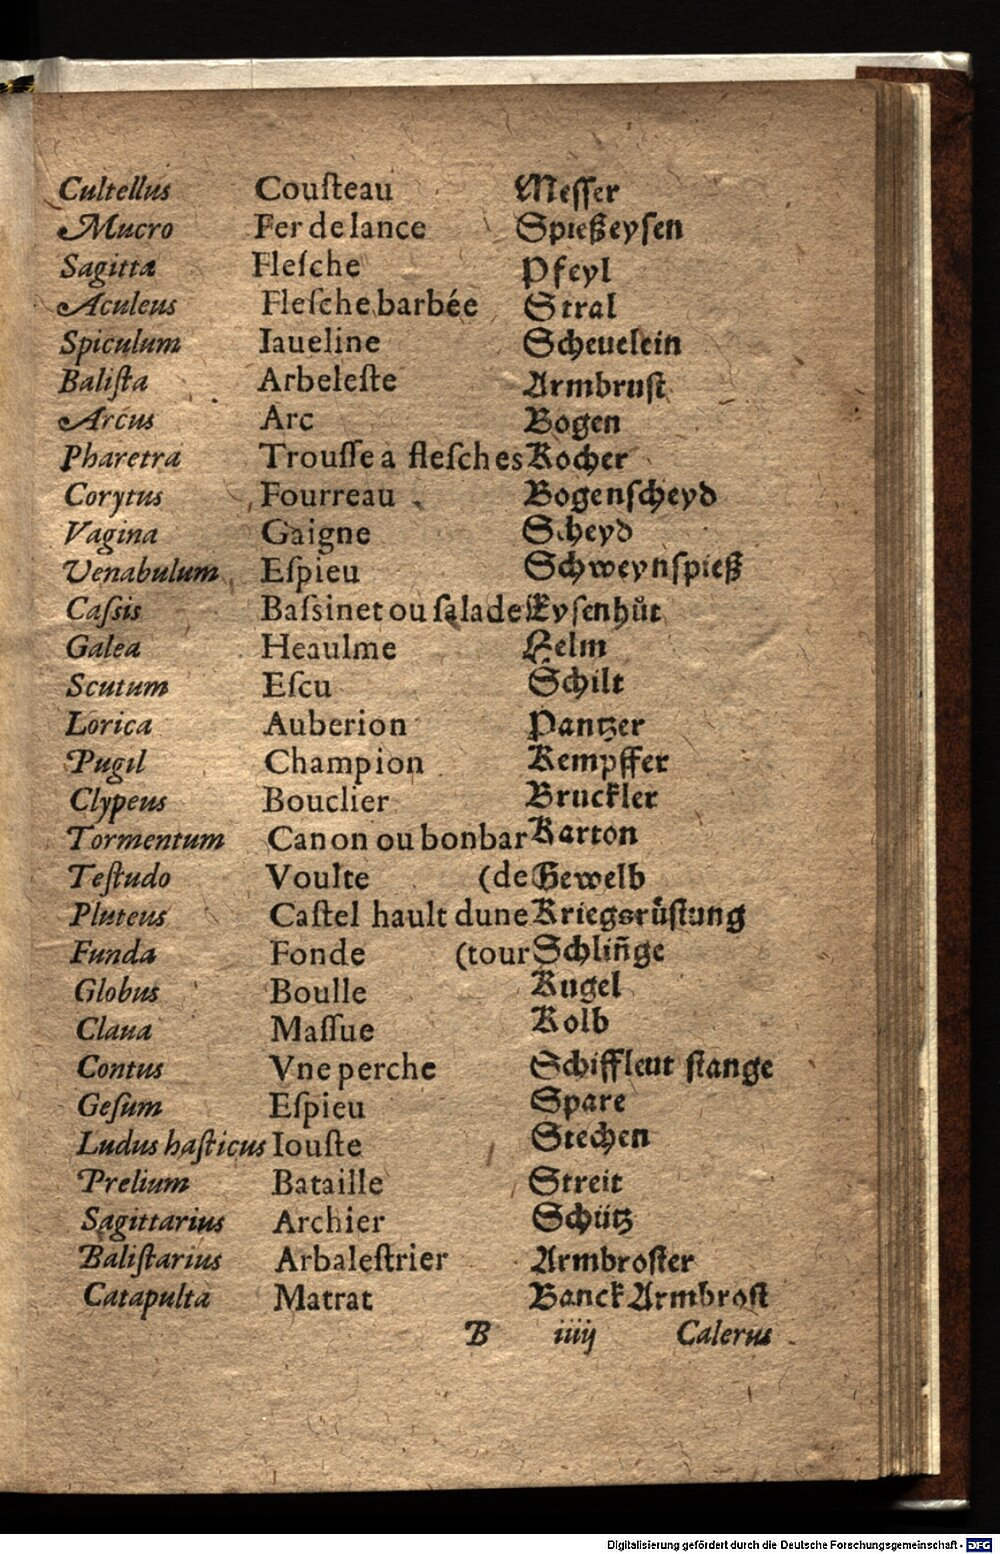 Cultellus Couſteau Meſſer
Mucro Fer de lance Spießeyſen
Sagitta Fleſche Pfeyl
Aculeus Fleſche barbée Stral
Spiculum Iaueline Scheuelein
Baliſta Arbeleſte Armbruſt
Arcus Arc Bogen
Pharetra Trouſſe a fleſches Kocher
Corytus Fourreau Bogenſcheyd
Vagina Gaigne Scheyd
Venabulum Eſpieu Schweynſpieß
Caſsis Baſsinet ou ſalade Eyſenhůt
Galea Heaulme Helm
Scutum Eſcu Schilt
Lorica Auberion Pantzer
Pugil Champion Kempffer
Clypeus Bouclier Bruckler
Tormentum Canon ou bonbar Karton
Teſtudo Voulte (de Gewelb
Pluteus Caſtel hault dune Kriegsrüſtung
Funda Fonde (tour Schliñge
Globus Boulle Kugel
Claua Maſſue Kolb
Contus Vne perche Schiffleut ſtange
Geſum Eſpieu Spare
Ludus haſticus Iouſte Stechen
Prelium Bataille Streit
Sagittarius Archier Schütz
Baliſtarius Arbaleſtrier Armbroſter
Catapulta Matrat Banck Armbroſt
B iiij Calerus
Digitalisierung gefördert durch die Deutsche Forschungsgemeinschaft - DFG